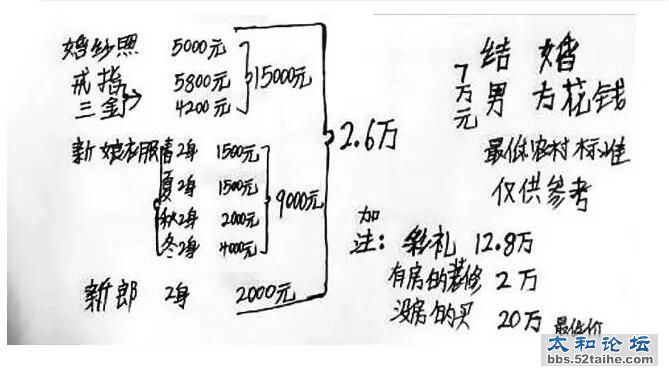 婚纱照 5000元
戒指 5800元
三金 4200元
15000元
新娘衣服 春2身 1500元
夏2身 1500元
秋2身 2000元
冬2身 4000元
9000元
新郎 2身 2000元
2.6万
7万元
结婚
男方花钱
最低农村标准
仅供参考
加
注：彩礼 12.8万
有房的装修 2万
没房的买 20万 最低价
太和论坛
bbs.52taihe.com